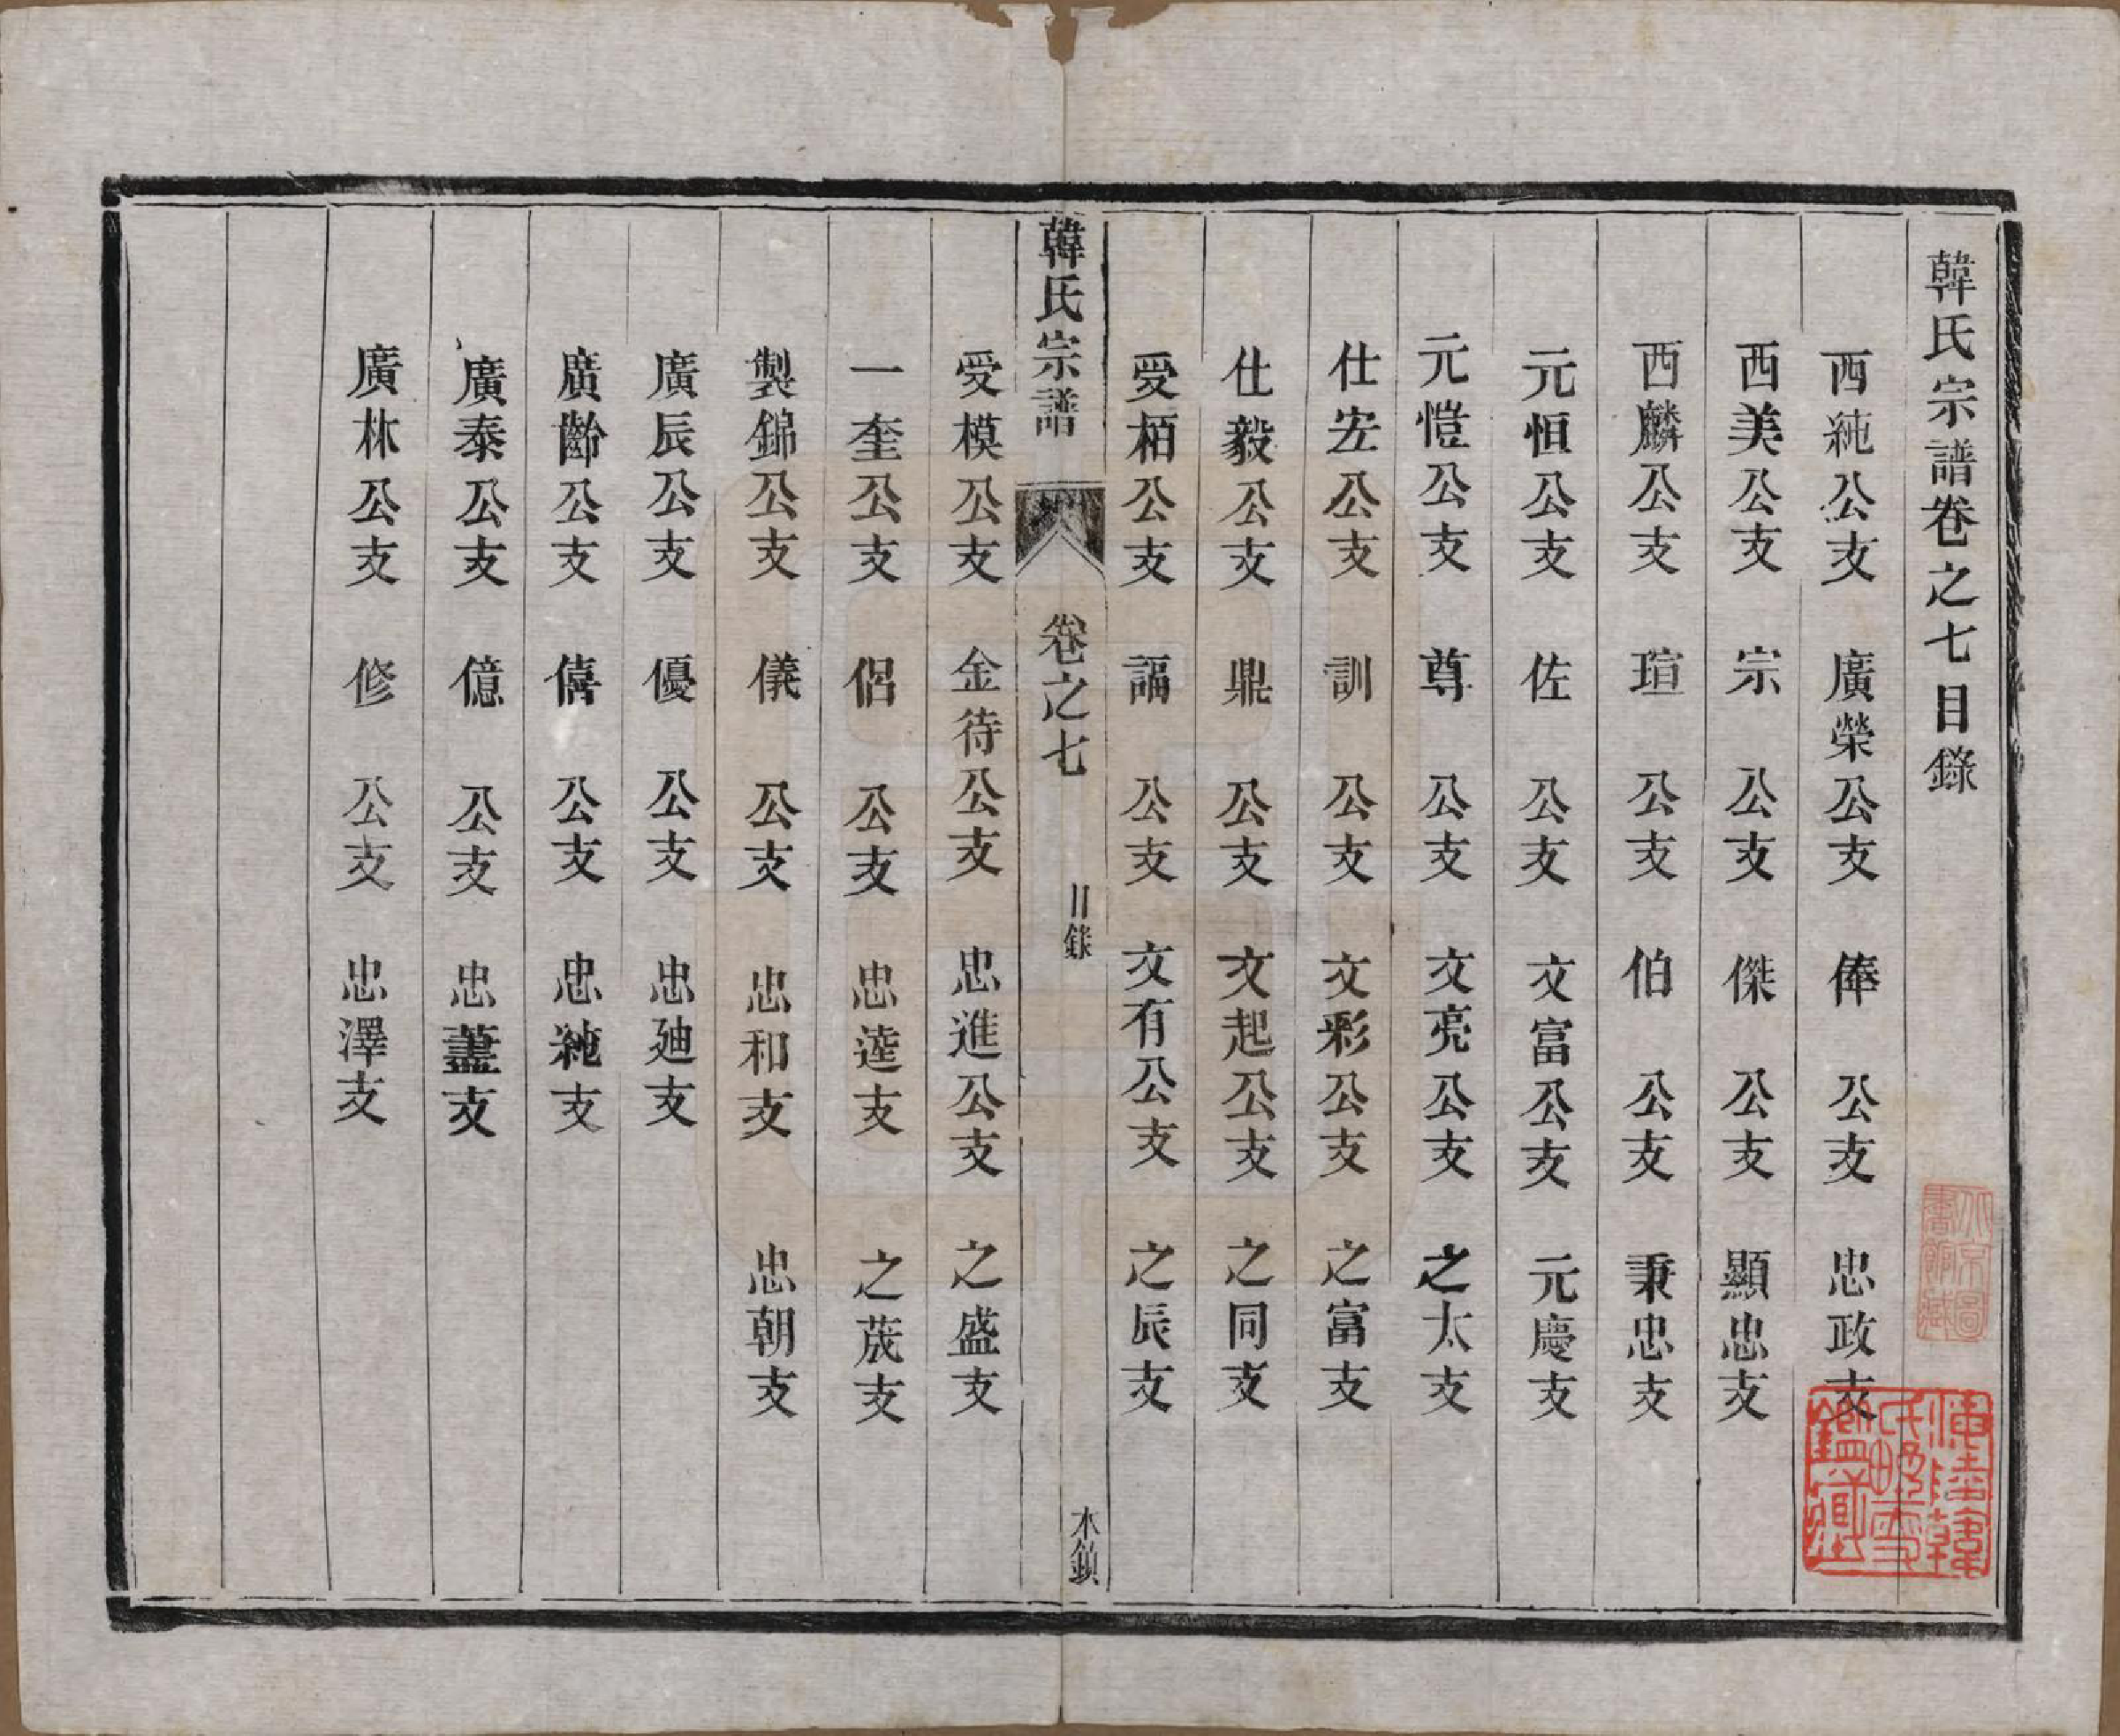 韓氏宗譜卷之七目錄
西純公支 廣榮公支 俸公支 忠政支
西美公支 宗公支 傑公支 顯忠支
西麟公支 瑄公支 伯公支 秉忠支
元恒公支 佐公支 文富公支 元慶支
元愷公支 尊公支 文亮公支 之太支
仕宏公支 訓公支 文彩公支 之富支
仕毅公支 鼎公支 文起公支 之同支
愛栢公支 諨公支 文有公支 之辰支
韓氏宗譜 卷之七 目錄
愛模公支 金待公支 忠進公支 之盛支
一奎公支 侶公支 忠逵支 之茂支
製錦公支 儀公支 忠和支 忠朝支
廣辰公支 優公支 忠廸支
廣齡公支 僖公支 忠純支
廣泰公支 億公支 忠藎支
廣林公支 修公支 忠澤支